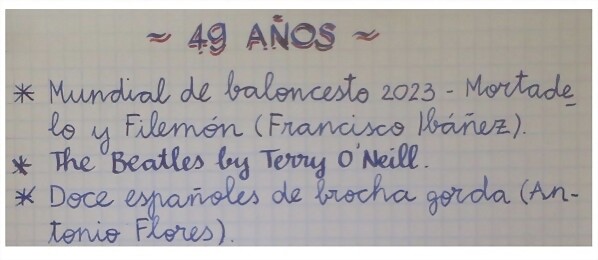 ~ 49 AÑOS ~
* Mundial de baloncesto 2023 - Mortade_
lo y Filemón (Francisco Ibáñez).
* The Beatles by Terry O'Neill.
* Doce españoles de brocha gorda (An-
tonio Flores).